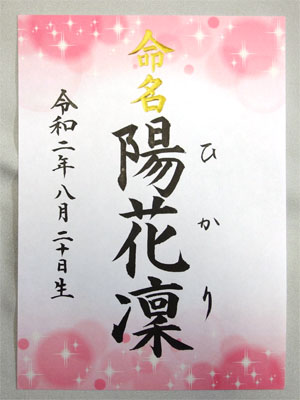 命名
陽花凜
ひかり
令和二年八月二十日生